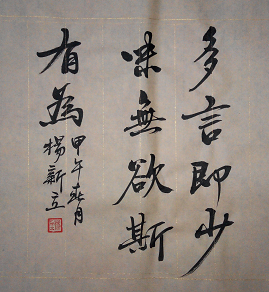 多言即少
味無欲斯
有為
甲午春月
楊新立